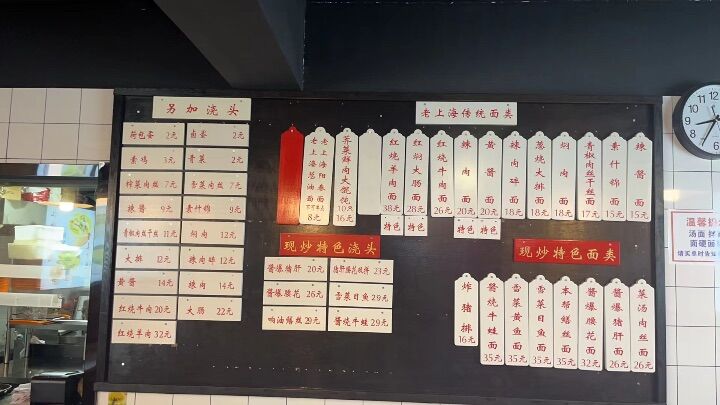 另加浇头
荷包蛋 2元
卤蛋 2元
素鸡 3元
青菜 2元
榨菜肉丝 7元
雪菜肉丝 7元
辣酱 9元
素什锦 9元
青椒肉丝干丝 11元
焖肉 12元
大排 12元
辣肉碎 12元
黄酱 14元
辣肉 14元
红烧牛肉 20元
大肠 22元
红烧羊肉 32元
老上海传统面类
老上海葱油面 8元
老上海阳春面
荠菜鲜肉大馄饨 10元 16元
红烧羊肉面 38元
特色
红焖大肠面 28元
特色
红烧牛肉面 26元
辣肉面 20元
特色
黄酱面 20元
特色
辣肉碎面 18元
葱烧大排面 18元
焖肉面 18元
青椒肉丝干丝面 17元
素什锦面 15元
辣酱面 15元
现炒特色浇头
酱爆猪肝 20元
猪肝腰花双拼 23元
酱爆腰花 26元
雪菜目鱼 29元
响油鳝丝 29元
酱烧牛蛙 29元
现炒特色面类
炸猪排 16元
酱烧牛蛙面 35元
雪菜黄鱼面 35元
雪菜目鱼面 35元
本帮鳝丝面 35元
酱爆腰花面 32元
酱爆猪肝面 26元
菜汤肉丝面 26元
温馨
汤面
面硬面